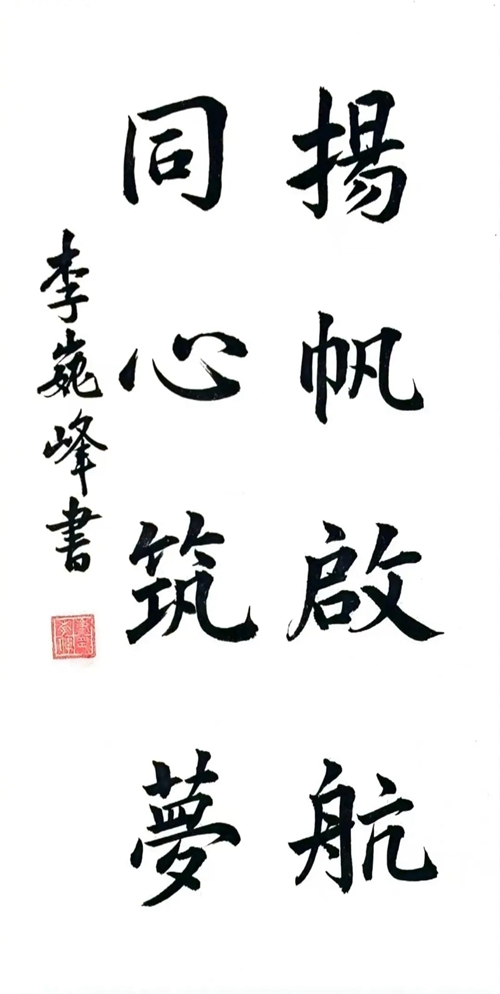 揚帆啟航
同心筑夢
李巍峰書